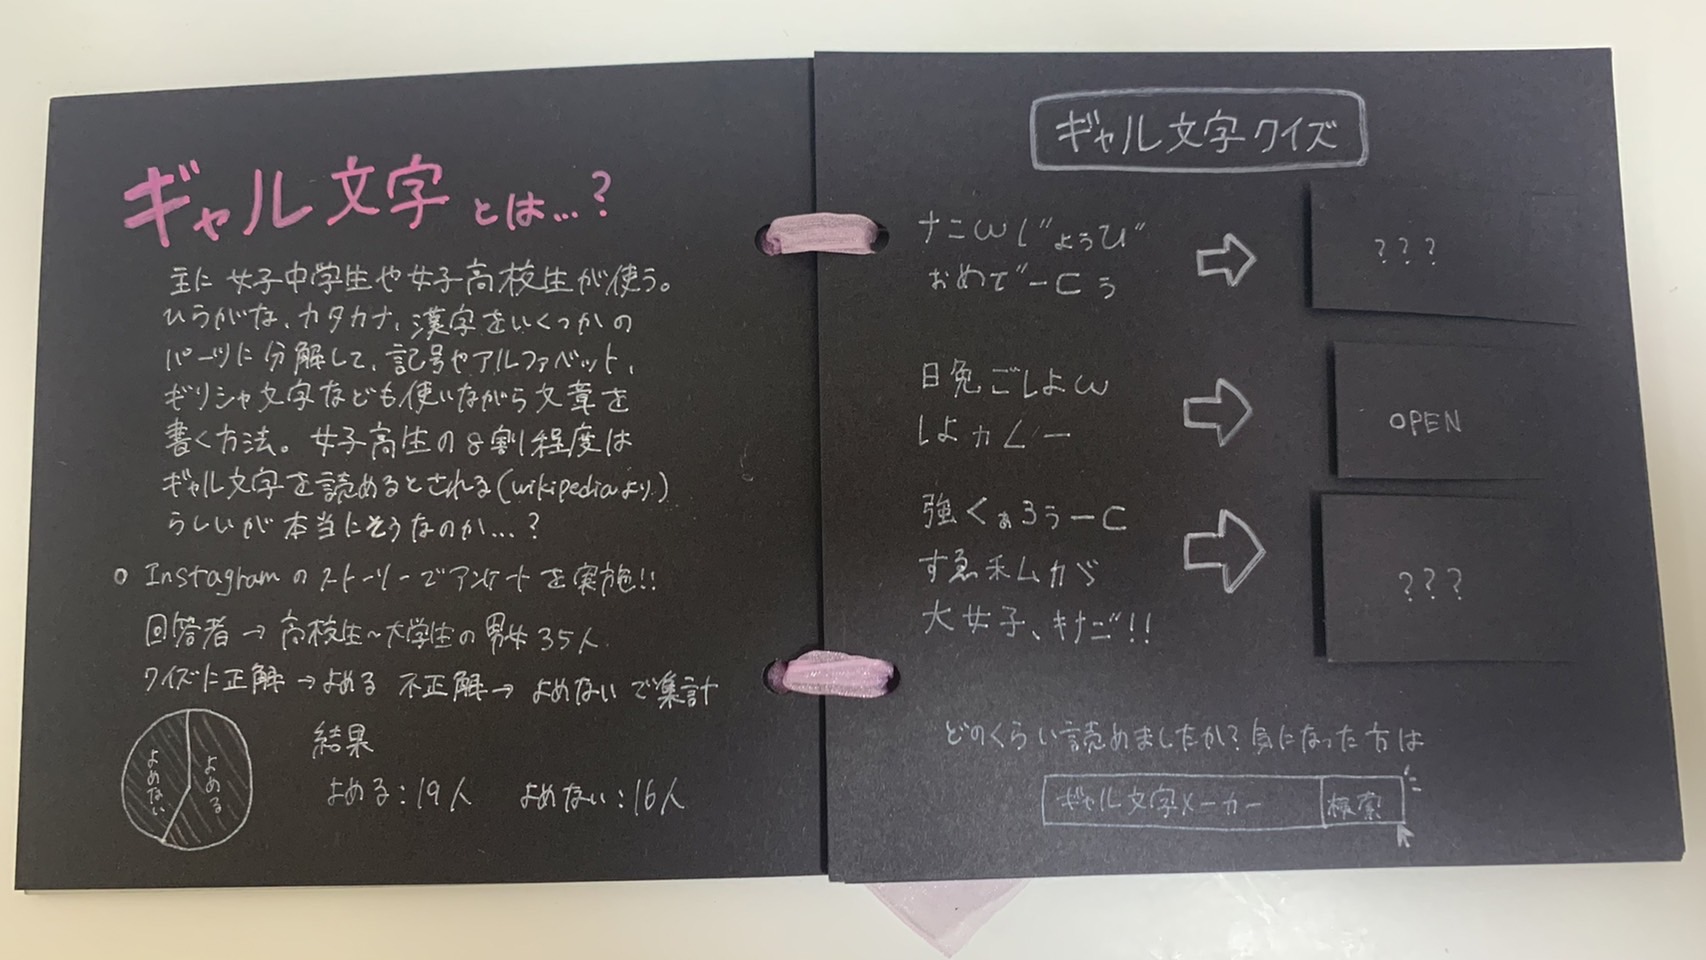 ギャル文字とは…?
主に女子中学生や女子高校生が使う。
ひらがな、カタカナ、漢字をいくつかの
パーツに分解して、記号やアルファベット、
ギリシャ文字なども使いながら文章を
書く方法。女子高生の8割程度は
ギャル文字を読めるとされる(wikipediaより)
らしいが本当にそうなのか…?
○ Instagramのストーリーでアンケートを実施!!
回答者→高校生~大学生の男女35人
クイズに正解→よめる 不正解→よめないで集計
よめない
よめる
結果
よめる:19人 よめない:16人
ギャル文字クイズ
ナニωι゛ょぅひ"
おめで"ーㄷぅ
???
日免ごしよω
しよカ∠゛ー
OPEN
強くぁろぅーㄷ
すゑ禾ムカゞ
大女子、キナご!!
???
どのくらい読めましたか?気になった方は
ギャル文字メーカー 検索